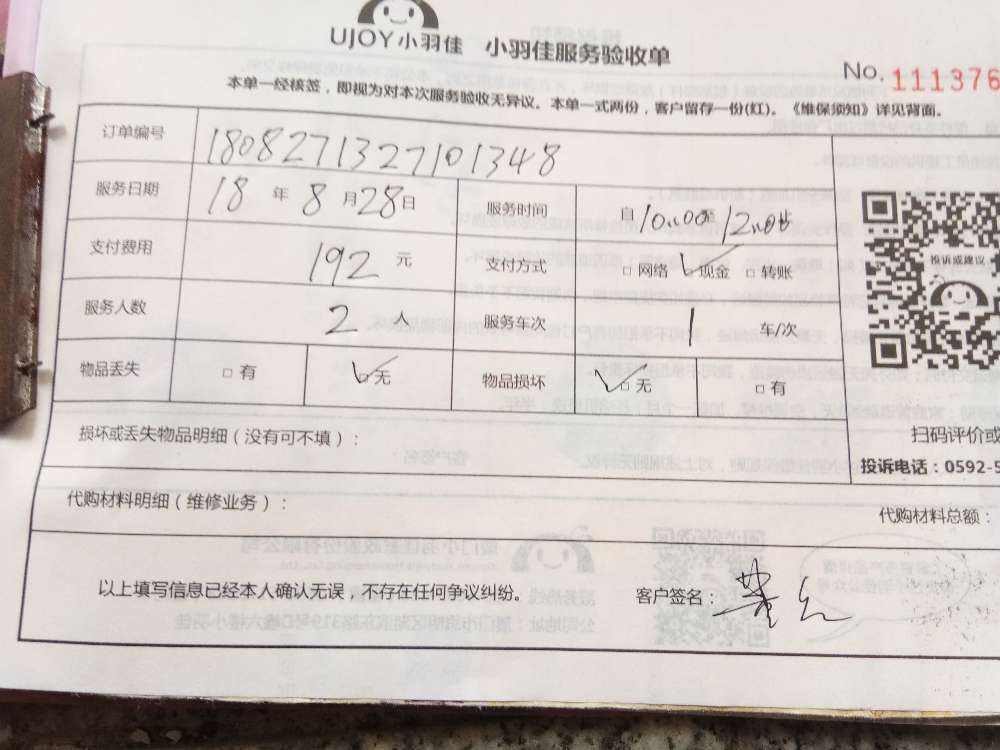 UJOY小羽佳 小羽佳服务验收单
No. 111376
本单一经核签，即视为对本次服务验收无异议。本单一式两份，客户留存一份(红)。《维保须知》详见背面。
订单编号 1808271327101348
服务日期 18 年 8 月 28 日 服务时间 自 10:00 至 12:00 止
支付费用 192 元 支付方式 □网络 ☑现金 □转账
服务人数 2 人 服务车次 1 车/次
物品丢失 □有 ☑无 物品损坏 ☑无 □有
投诉或建议
损坏或丢失物品明细（没有可不填）：
扫码评价或
投诉电话：0592-5
代购材料明细（维修业务）：
代购材料总额：
以上填写信息已经本人确认无误，不存在任何争议纠纷。 客户签名：